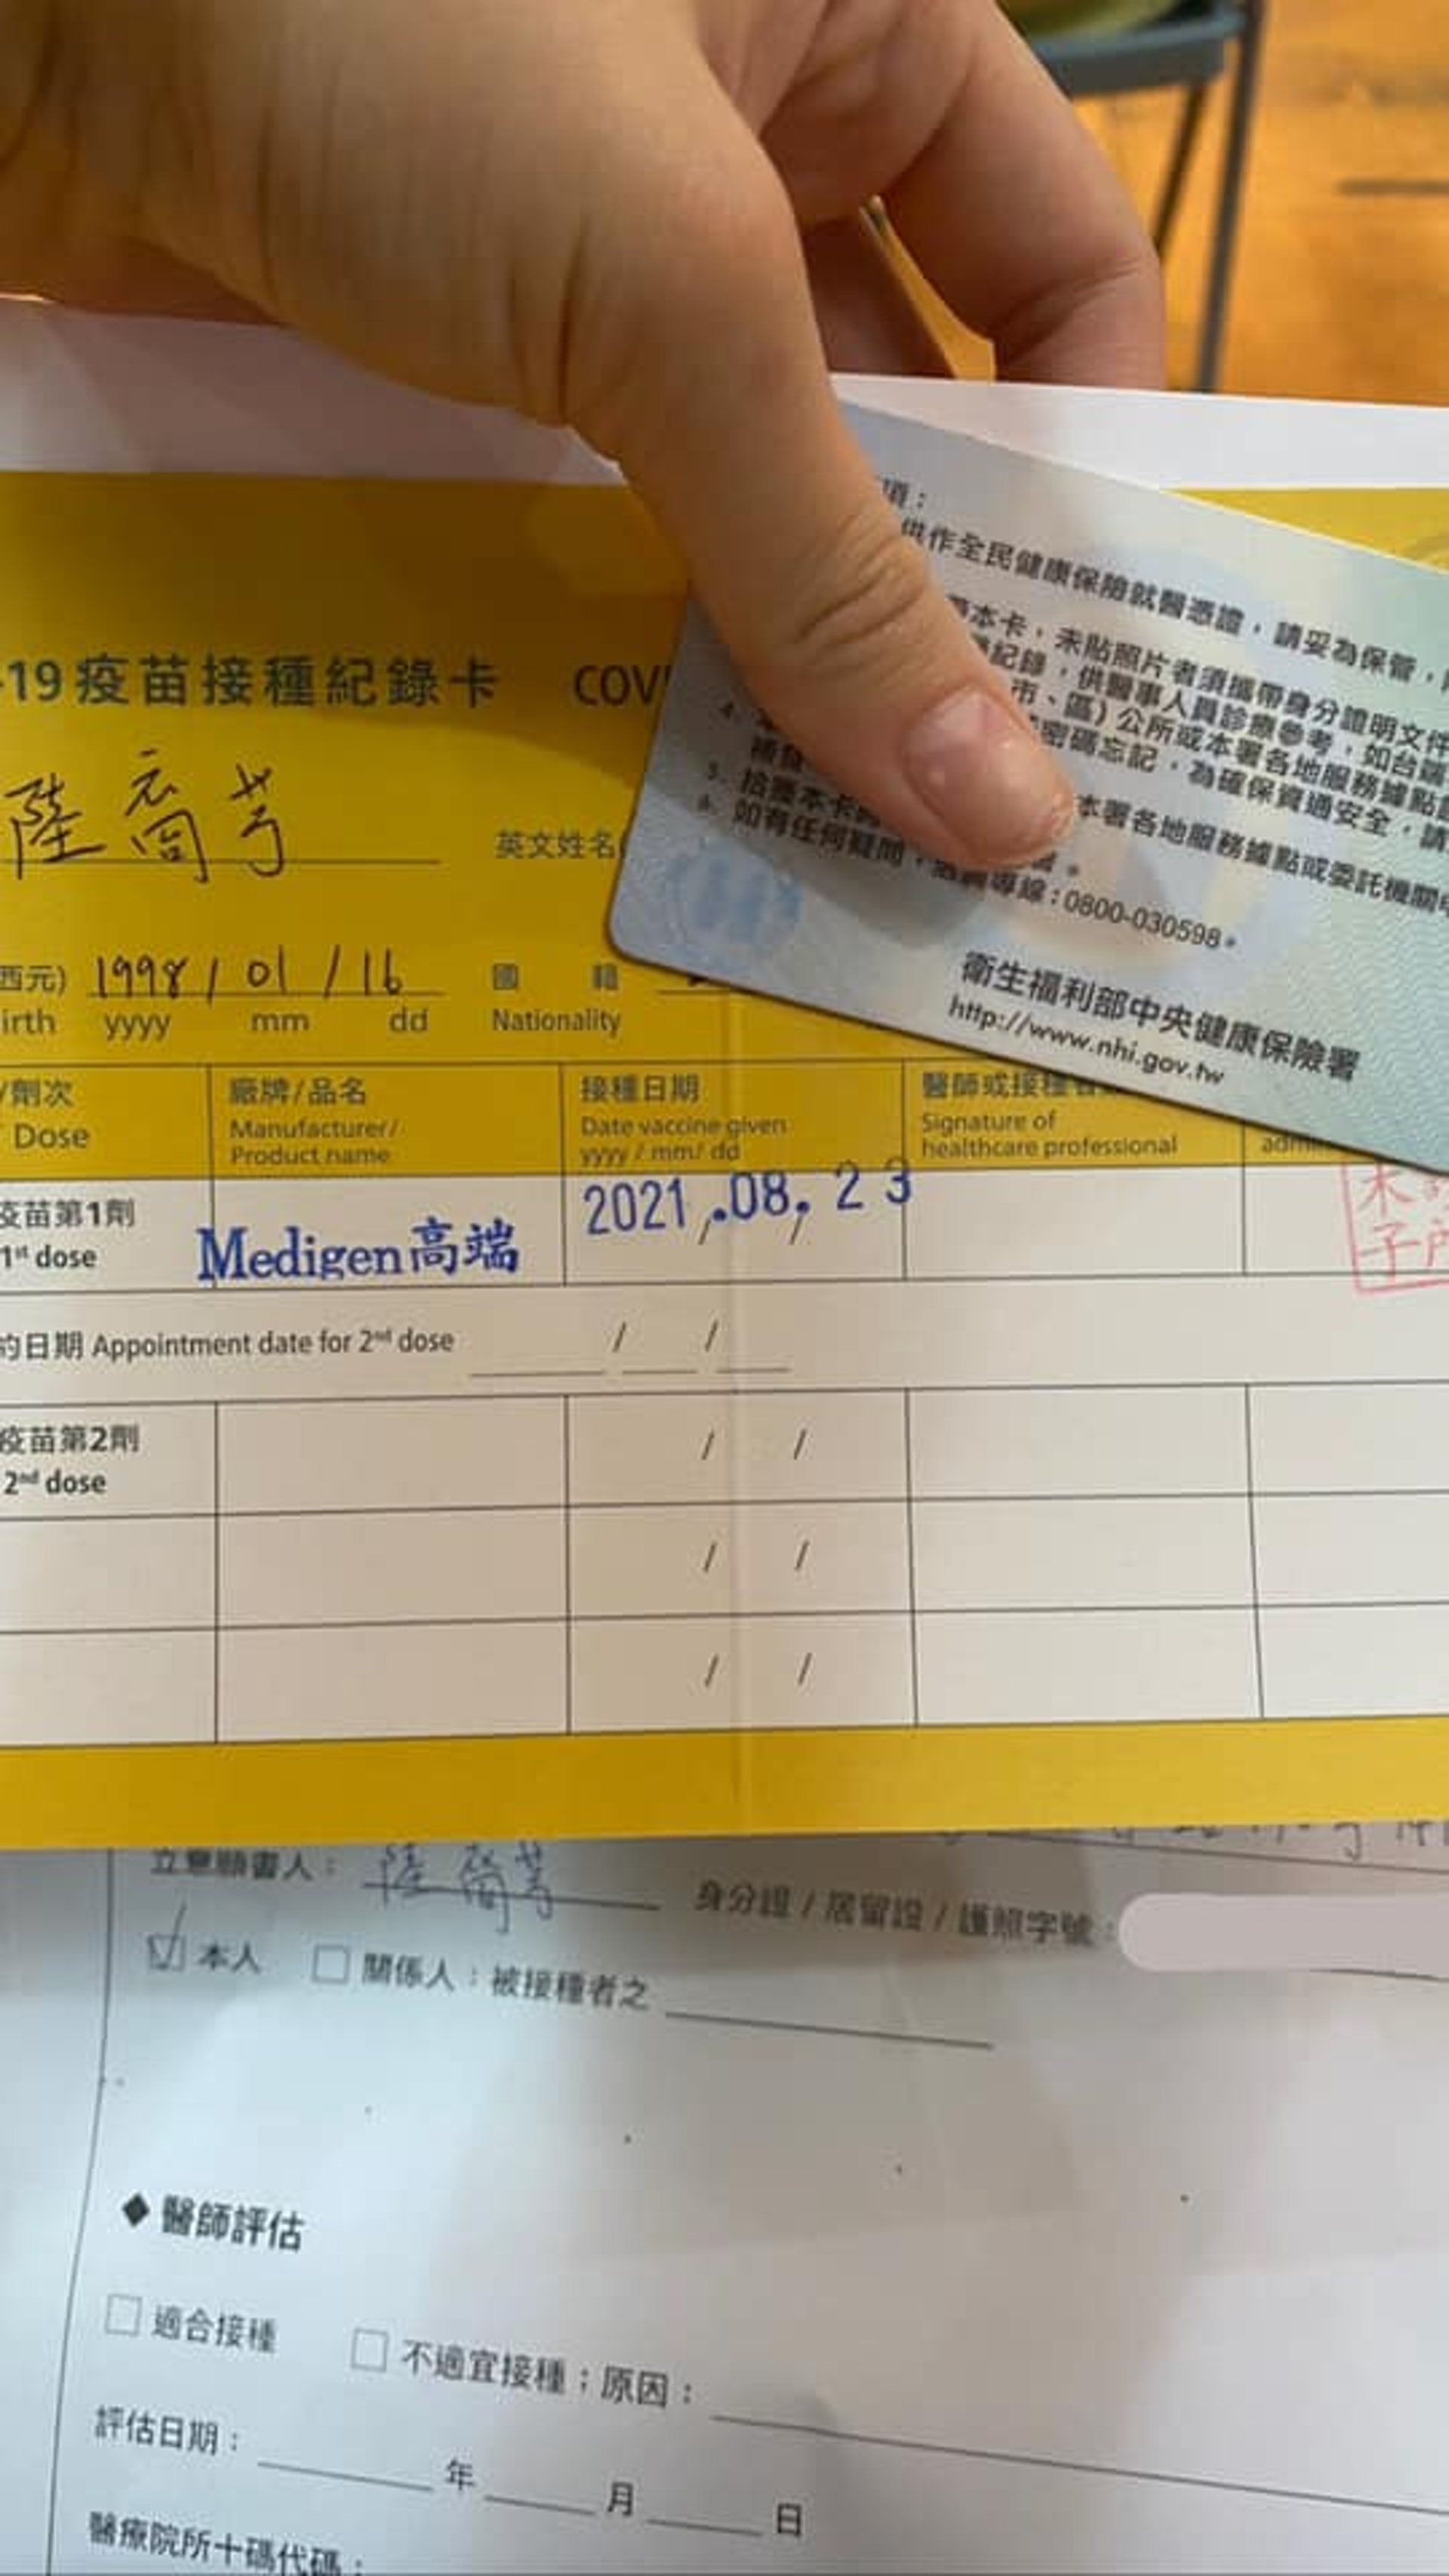 項：
供作全民健康保險就醫憑證，請妥為保管，
本卡，未貼照片者須攜帶身分證明文件
紀錄，供醫事人員診療參考，如台端
市、區）公所或本署各地服務據點
密碼忘記，為確保資通安全，請
本署各地服務據點或委託機關
5. 拾獲本卡
6. 如有任何疑問，
專線：0800-030598。
衛生福利部中央健康保險署
http://www.nhi.gov.tw
-19疫苗接種紀錄卡 COVI
陸喬芳
英文姓名
西元) 1998 / 01 / 16 國 籍
irth yyyy mm dd Nationality
/劑次 廠牌/品名 接種日期 醫師或接種
Dose Manufacturer/ Date vaccine given Signature of
Product name yyyy / mm/ dd healthcare professional
疫苗第1劑 Medigen高端 2021.08.23
1st dose
約日期 Appointment date for 2nd dose / /
疫苗第2劑 / /
2nd dose
/ /
/ /
立意願書人： 陸喬芳 身分證 / 居留證 / 護照字號：
☑ 本人 □ 關係人：被接種者之
◆ 醫師評估
□ 適合接種 □ 不適宜接種；原因：
評估日期： 年 月 日
醫療院所十碼代碼：